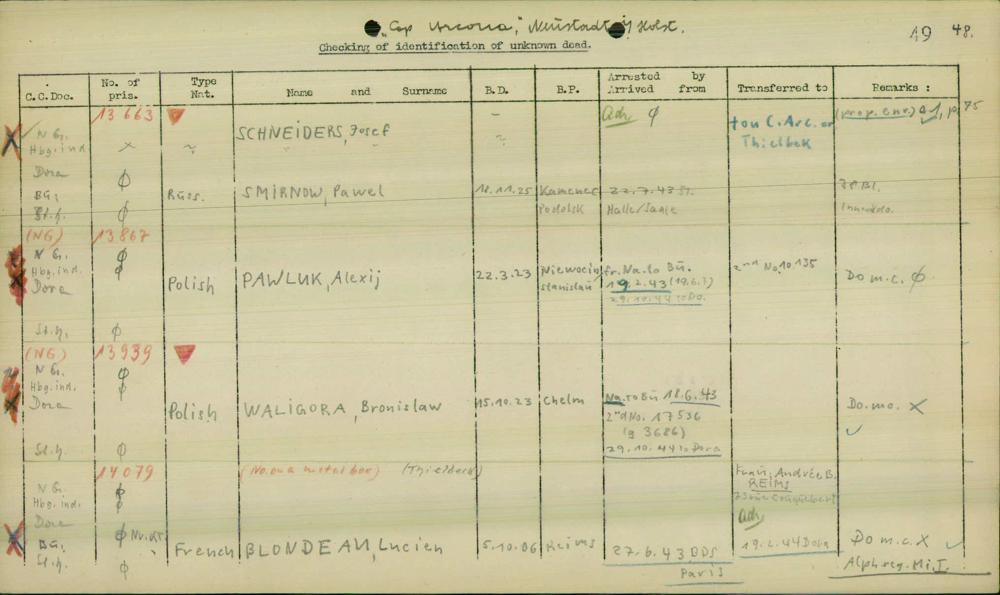 "Cap Arcona", Neustadt / Holst.
49 48.
Checking of identification of unknown dead.
C.C.Doc. No. of pris. Type Nat. Name and Surname B.D. B.P. Arrested by Arrived from Transferred to Remarks :
13 663 - Adr. ϕ (prop. env.) 75
N G. SCHNEIDERS, Josef to u C. Arc. or
Hbg. ind. Thielbek
Dora ϕ
BU, Russ. SMIRNOW, Pawel 18.11.25 Kamenec 22.7.43 St. ZBl.
St.h. ϕ Podolsk Halle/Saale
(NG) 13 867
N G. ϕ
Hbg. ind. ϕ Niewocin fr. Na. to Bü. 2nd No. 10 135
Dora Polish PAWLUK, Alexij 22.3.23 Stanislau 19.2.43 (19.6.?) Do m.c. ϕ
29.10.44 to Do.
St.h. ϕ
(NG) 13 939
N G. ϕ
Hbg. ind. ϕ
Dora Polish WALIGORA, Bronislaw 15.10.23 Chelm Na. to Bü 18.6.43 Do. mo. X
2nd No. 17 536
(g 3686)
St.h. ϕ 29.10.44 to Dora
14 079 (No. on a metal box) (Thielbeck) Andrée B.
N G. ϕ REIMS
Hbg. ind. ϕ
Dora Adr.
BU, ϕ French BLONDEAU, Lucien 5.10.06 Reims 27.6.43 BDS 19.2.44 Dora Do m.c. X
St.h. ϕ Paris Alph reg. Mi. I.